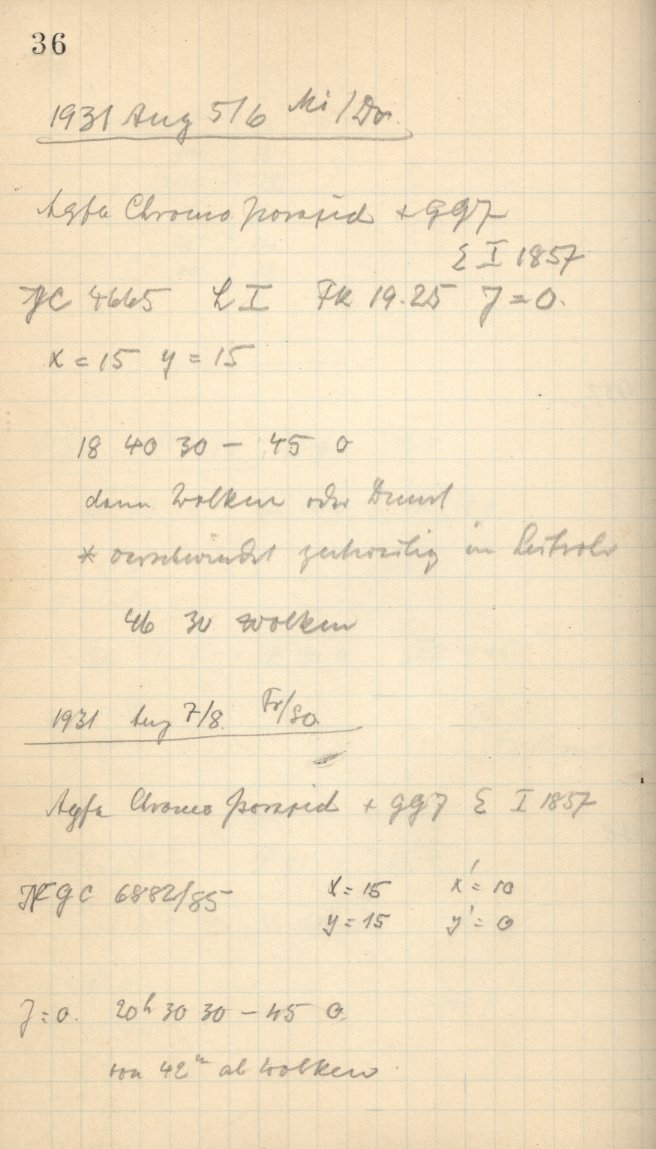 36
1931 Aug 5/6 Mi/Do.
Agfa Chromo Isorapid + GG7
Σ I 1857
NGC 4665 L I FK 19.25 J = 0.
x = 15 y = 15
18 40 30 – 45 0
dann Wolken oder Dunst
* verschwindet zeitweilig im Leitrohr
46 30 Wolken
1931 Aug 7/8 Fr/Sa
Agfa Chromo Isorapid + GG7 Σ I 1857
NGC 6882/85 x = 15 x' = 10
y = 15 y' = 0
J = 0. 20h 30 30 – 45 0
von 42m ab Wolken